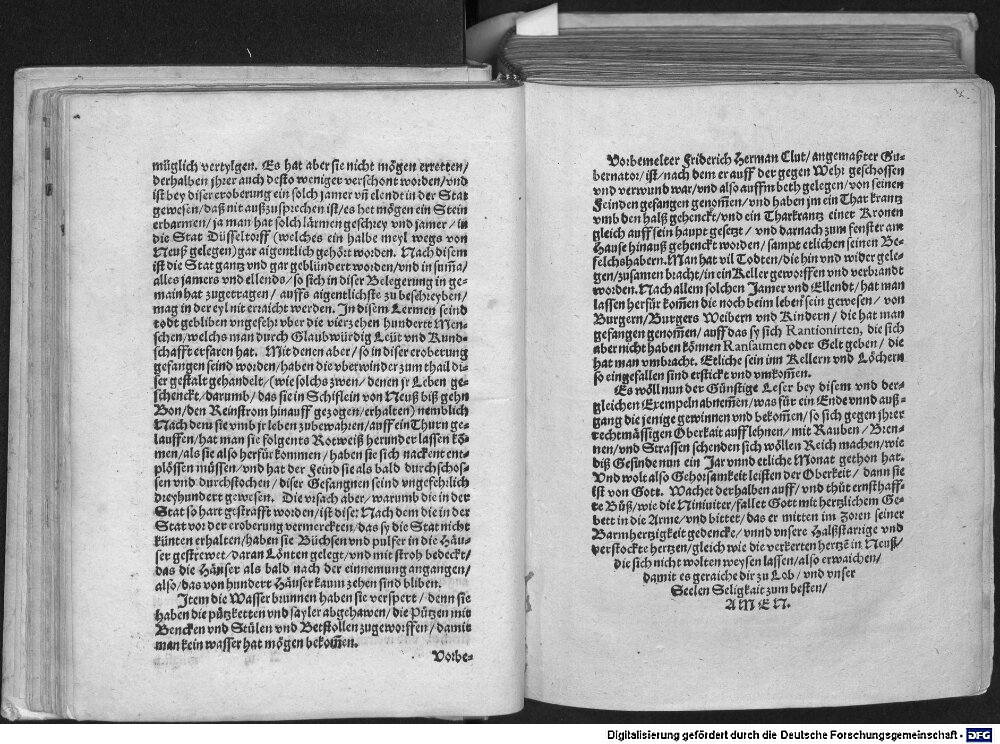 müglich vertylgen. Es hat aber sie nicht mögen erretten/
derhalben jhrer auch desto weniger verschont worden/vnd
ist bey diser eroberung ein solch jamer vñ elendt in der Stat
gewesen/daß nit außzusprechen ist/es het mögen ein Stein
erbarmen/ja man hat solch lärmen geschrey vnd jamer/in
die Stat Düsseltorff (welches ein halbe meyl wegs von
Neuß gelegen)gar aigentlich gehört worden. Nach disem
ist die Stat gantz vnd gar geblündert worden/vnd in sum̃a/
alles jamers vnd ellends/so sich in diser Belegerung in ge-
main hat zugetragen/ auffs aigentlichste zu beschreyben/
mag in der eyl nit erraicht werden. In disem Lermen seind
todt gebliben vngefehr vber die vierzehen hundertt Men-
schen/welchs man durch Glaubwürdig Leüt vnd Kund-
schafft erfaren hat. Mit denen aber/so in diser eroberung
gefangen seind worden/haben die vberwinder zum thail di-
ser gestalt gehandelt/(wie solchs zwen/denen jr Leben ge-
schenckt/darumb/das sie in Schiflein von Neuß biß gehn
Bon/den Reinstrom hinauff gezogen/erhalten) nemblich
Nach dem sie vmb jr leben zubewahren/auff ein Thurn ge-
lauffen/hat man sie folgents Rotweiß herunder lassen kō-
men/als sie also herfür kommen/haben sie sich nackent ent-
plössen müssen/vnd hat der Feind sie als bald durchschos-
sen vnd durchstochen/diser Gefangnen seind vngefehrlich
dreyhundert gewesen. Die vrsach aber/warumb die in der
Stat so hart gestrafft worden/ist dise: Nach dem die in der
Stat vor der eroberung vermerckten/das sy die Stat nicht
künten erhalten/haben sie Büchsen vnd pulfer in die Häu-
ser gestrewet/daran Lönten gelegt/vnd mit stroh bedeckt/
das die Häuser als bald nach der einnemung angangen/
also/das von hundert Häuser kaum zehen sind bliben.
Item die Wasserbrunnen haben sie verspert/denn sie
haben die pützketten vnd sayler abgehawen/die Pützen mit
Bencken vnd Stülen vnd Betstollen zugeworffen/damit
man kein wasser hat mögen bekom̃en.
Vorbe-
Vorbemelter Friderich Herman Clut/angemaßter Gu-
bernator/ist/nach dem er auff der gegen Wehr geschossen
vnd verwund war/vnd also auffm beth gelegen/von seinen
Feinden gefangen genom̃en/vnd haben jm ein Thar krantz
vmb den halß gehenckt/vnd ein Tharkrantz einer Kronen
gleich auff sein haupt gesetzt/ vnd darnach zum fenster am
Hause hinauß gehenckt worden/sampt etlichen seinen Be-
felchshabern. Man hat vil Todten/die hin vnd wider gele-
gen/zusamen bracht/in ein Keller geworffen vnd verbrandt
worden. Nach allem solchen Jamer vnd Ellendt/hat man
lassen herfür kom̃en die noch beim leben sein gewesen/ von
Burgern/Burgers Weibern vnd Kindern/ die hat man
gefangen genom̃en/auff das sy sich Rantionirten, die sich
aber nicht haben können Ransaumen oder Gelt geben/ die
hat man vmbracht. Etliche sein im Kellern vnd Löchern
so eingefallen sind erstickt vnd vmkom̃en.
Es wöll nun der Günstige Leser bey disem vnd der-
gleichen Exempeln abnem̃en/was für ein Ende vnnd auß-
gang die jenige gewinnen vnd bekom̃en/so sich gegen jhrer
rechtmässigen Oberkait aufflehnen/mit Rauben/ Bren-
nen/vnd Strassen schenden sich wöllen Reich machen/wie
diß Gesinde nun ein Jar vnnd etliche Monat gethon hat.
Vnd wolt also Gehorsamkeit leisten der Oberkeit/ dann sie
ist von Gott. Wachet derhalben auff/ vnd thüt ernsthaff-
te Büß/wie die Niniuiter/fallet Gott mit hertzlichem Ge-
bett in die Arme/vnd bittet/das er mitten im Zoren seiner
Barmhertzigkeit gedencke/vnnd vnsere Halßstarrige vnd
verstockte hertzen/gleich wie die verkerten hertzē in Neuß/
die sich nicht wolten weysen lassen/also erwaichen/
damit es geraiche dir zu Lob/ vnd vnser
Seelen Seligkait zum besten/
A M E N.
Digitalisierung gefördert durch die Deutsche Forschungsgemeinschaft - DFG